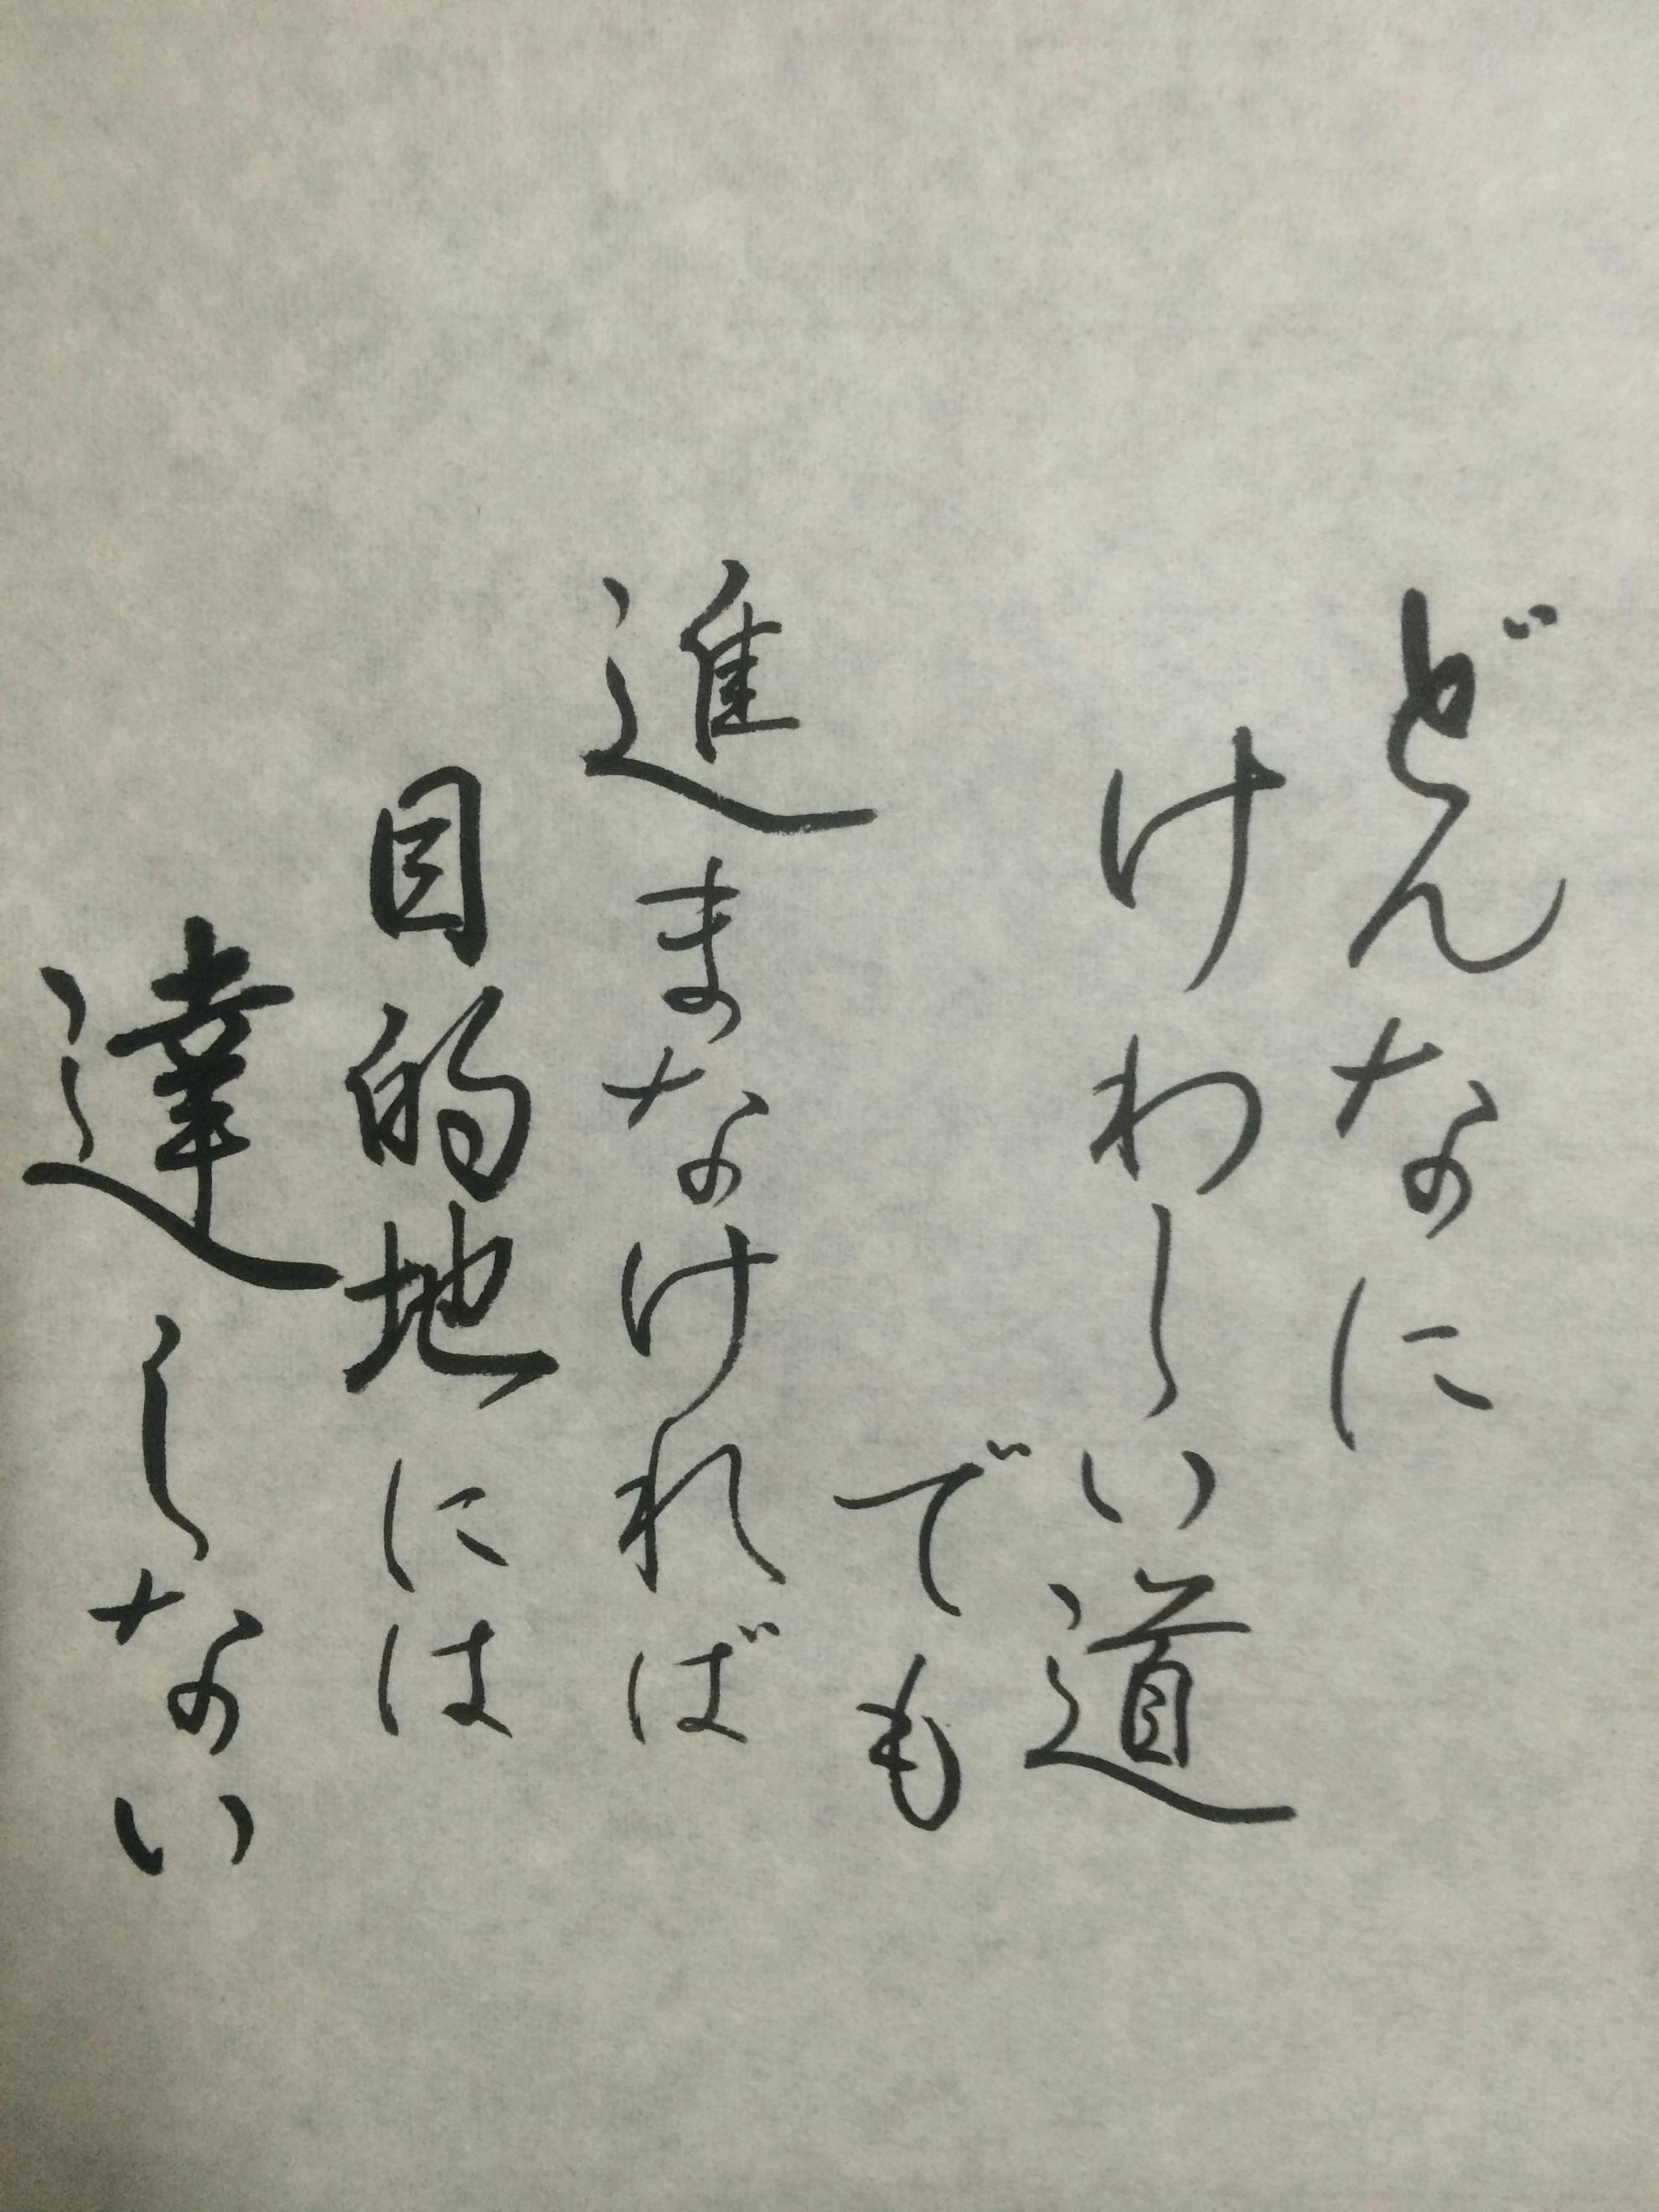 どんなに
けわしい道
でも
進まなければ
目的地には
達しない